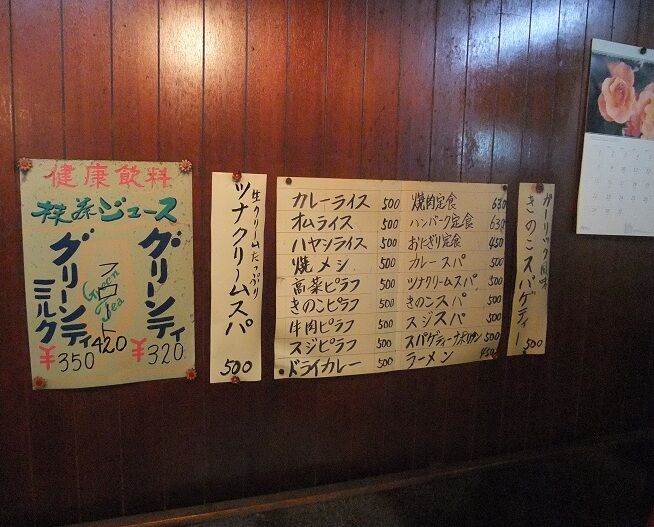 健康飲料
抹茶ジュース
グリーンティ
¥320
フロート
Green
Tea
420
グリーンティ
ミルク
¥350
生クリームたっぷり
ツナクリームスパ
500
カレーライス 500
オムライス 500
ハヤシライス 500
焼メシ 500
高菜ピラフ 500
きのこピラフ 500
牛肉ピラフ 500
スジピラフ 500
ドライカレー 500
焼肉定食 630
ハンバーク定食 630
おにぎり定食 450
カレースパ 500
ツナクリームスパ 500
きのこスパ 500
スジスパ 500
スパゲティーナポリタン 500
ラーメン 450
ガーリック風味
きのこスパゲティー
500